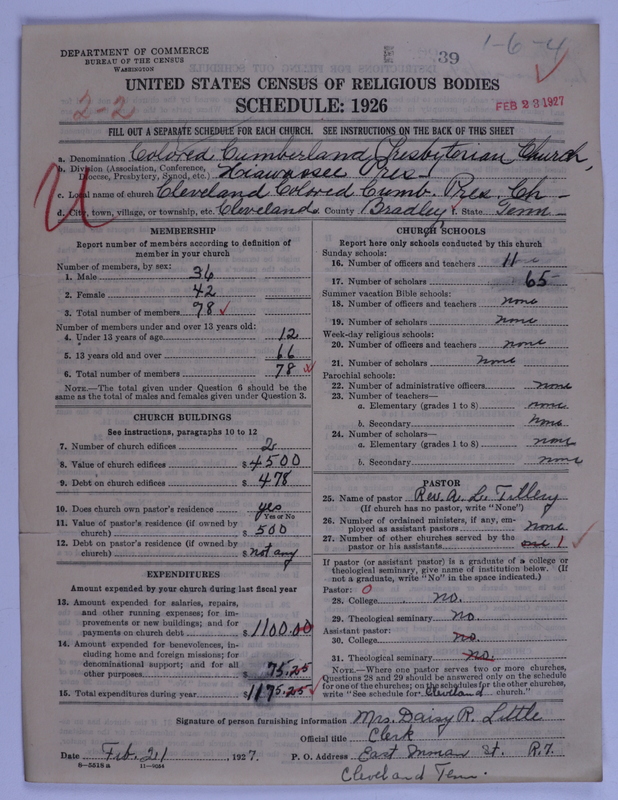 DEPARTMENT OF COMMERCE
BUREAU OF THE CENSUS
WASHINGTON
39
1-6-4
UNITED STATES CENSUS OF RELIGIOUS BODIES
SCHEDULE: 1926
2-2
FEB 23 1927
FILL OUT A SEPARATE SCHEDULE FOR EACH CHURCH. SEE INSTRUCTIONS ON THE BACK OF THIS SHEET
a. Denomination Colored Cumberland Presbyterian Church,
b. Division (Association, Conference, Diocese, Presbytery, Synod, etc.) Hiawassee Pres
c. Local name of church Cleveland Colored Cumb. Pres. Ch
d. City, town, village, or township, etc. Cleveland e. County Bradley f. State Tenn
U
MEMBERSHIP
Report number of members according to definition of
member in your church
Number of members, by sex:
1. Male 36
2. Female 42
3. Total number of members 78
Number of members under and over 13 years old:
4. Under 13 years of age 12
5. 13 years old and over 66
6. Total number of members 78
NOTE.—The total given under Question 6 should be
same as the total of males and females given under Question 3.
CHURCH BUILDINGS
See instructions, paragraphs 10 to 12
7. Number of church edifices 2
8. Value of church edifices $4500
9. Debt on church edifices $478
10. Does church own pastor's residence yes
Yes or No
11. Value of pastor's residence (if owned by
church) $500
12. Debt on pastor's residence (if owned by
church) $not any
EXPENDITURES
Amount expended by your church during last fiscal year
13. Amount expended for salaries, repairs,
and other running expenses; for im-
provements or new buildings; and for
payments on church debt $1100.00
14. Amount expended for benevolences, in-
cluding home and foreign missions; for
denominational support; and for all
other purposes 75.25
15. Total expenditures during year $1175.25
CHURCH SCHOOLS
Report here only schools conducted by this church
Sunday schools:
16. Number of officers and teachers 11
17. Number of scholars 65
Summer vacation Bible schools:
18. Number of officers and teachers none
19. Number of scholars none
Week-day religious schools:
20. Number of officers and teachers none
21. Number of scholars none
Parochial schools:
22. Number of administrative officers none
23. Number of teachers—
a. Elementary (grades 1 to 8) none
b. Secondary none
24. Number of scholars—
a. Elementary (grades 1 to 8) none
b. Secondary none
PASTOR
25. Name of pastor Rev. A. L. Tillery
(If church has no pastor, write "None")
26. Number of ordained ministers, if any, em-
ployed as assistant pastors none
27. Number of other churches served by the
pastor or his assistants one 1
If pastor (or assistant pastor) is a graduate of a college or
theological seminary, give name of institution below. (If
not a graduate, write "No" in the space indicated.)
Pastor: 0
28. College no.
29. Theological seminary no.
Assistant pastor:
30. College no.
31. Theological seminary no.
NOTE.—Where one pastor serves two or more churches,
Questions 28 and 29 should be answered only on the schedule
for one of the churches; on the schedules for the other churches,
write "See schedule for Cleveland church."
Signature of person furnishing information Mrs. Daisy R. Little
Official title Clerk
Date Feb. 21, 1927. P. O. Address East Inman St. R. 7.
8—5518 a 11—9054
Cleveland Tenn.